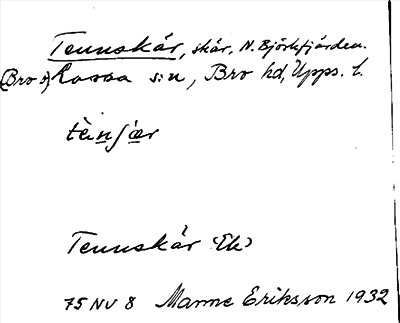 Tennskär, skär, N. Björkfjärden.
(Bro s) Låssa s:n, Bro hd, Upps. l.
Tennskär (Ek)
75 NV 8 Manne Eriksson 1932